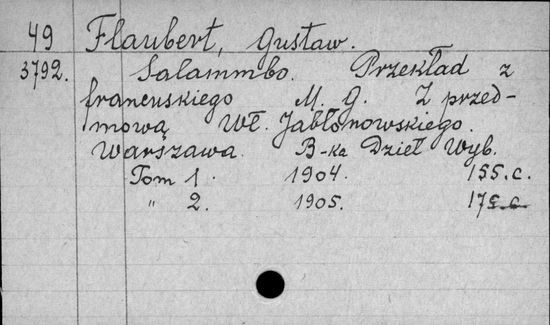 49 Flaubert, Gustaw.
3792. Salammbo. Przekład z
francuskiego M. G. Z przed-
mową Wł. Jabłonowskiego.
Warszawa. B-ka Dzieł Wyb.
Tom 1. 1904. 155. c.
" 2. 1905. 175 c.